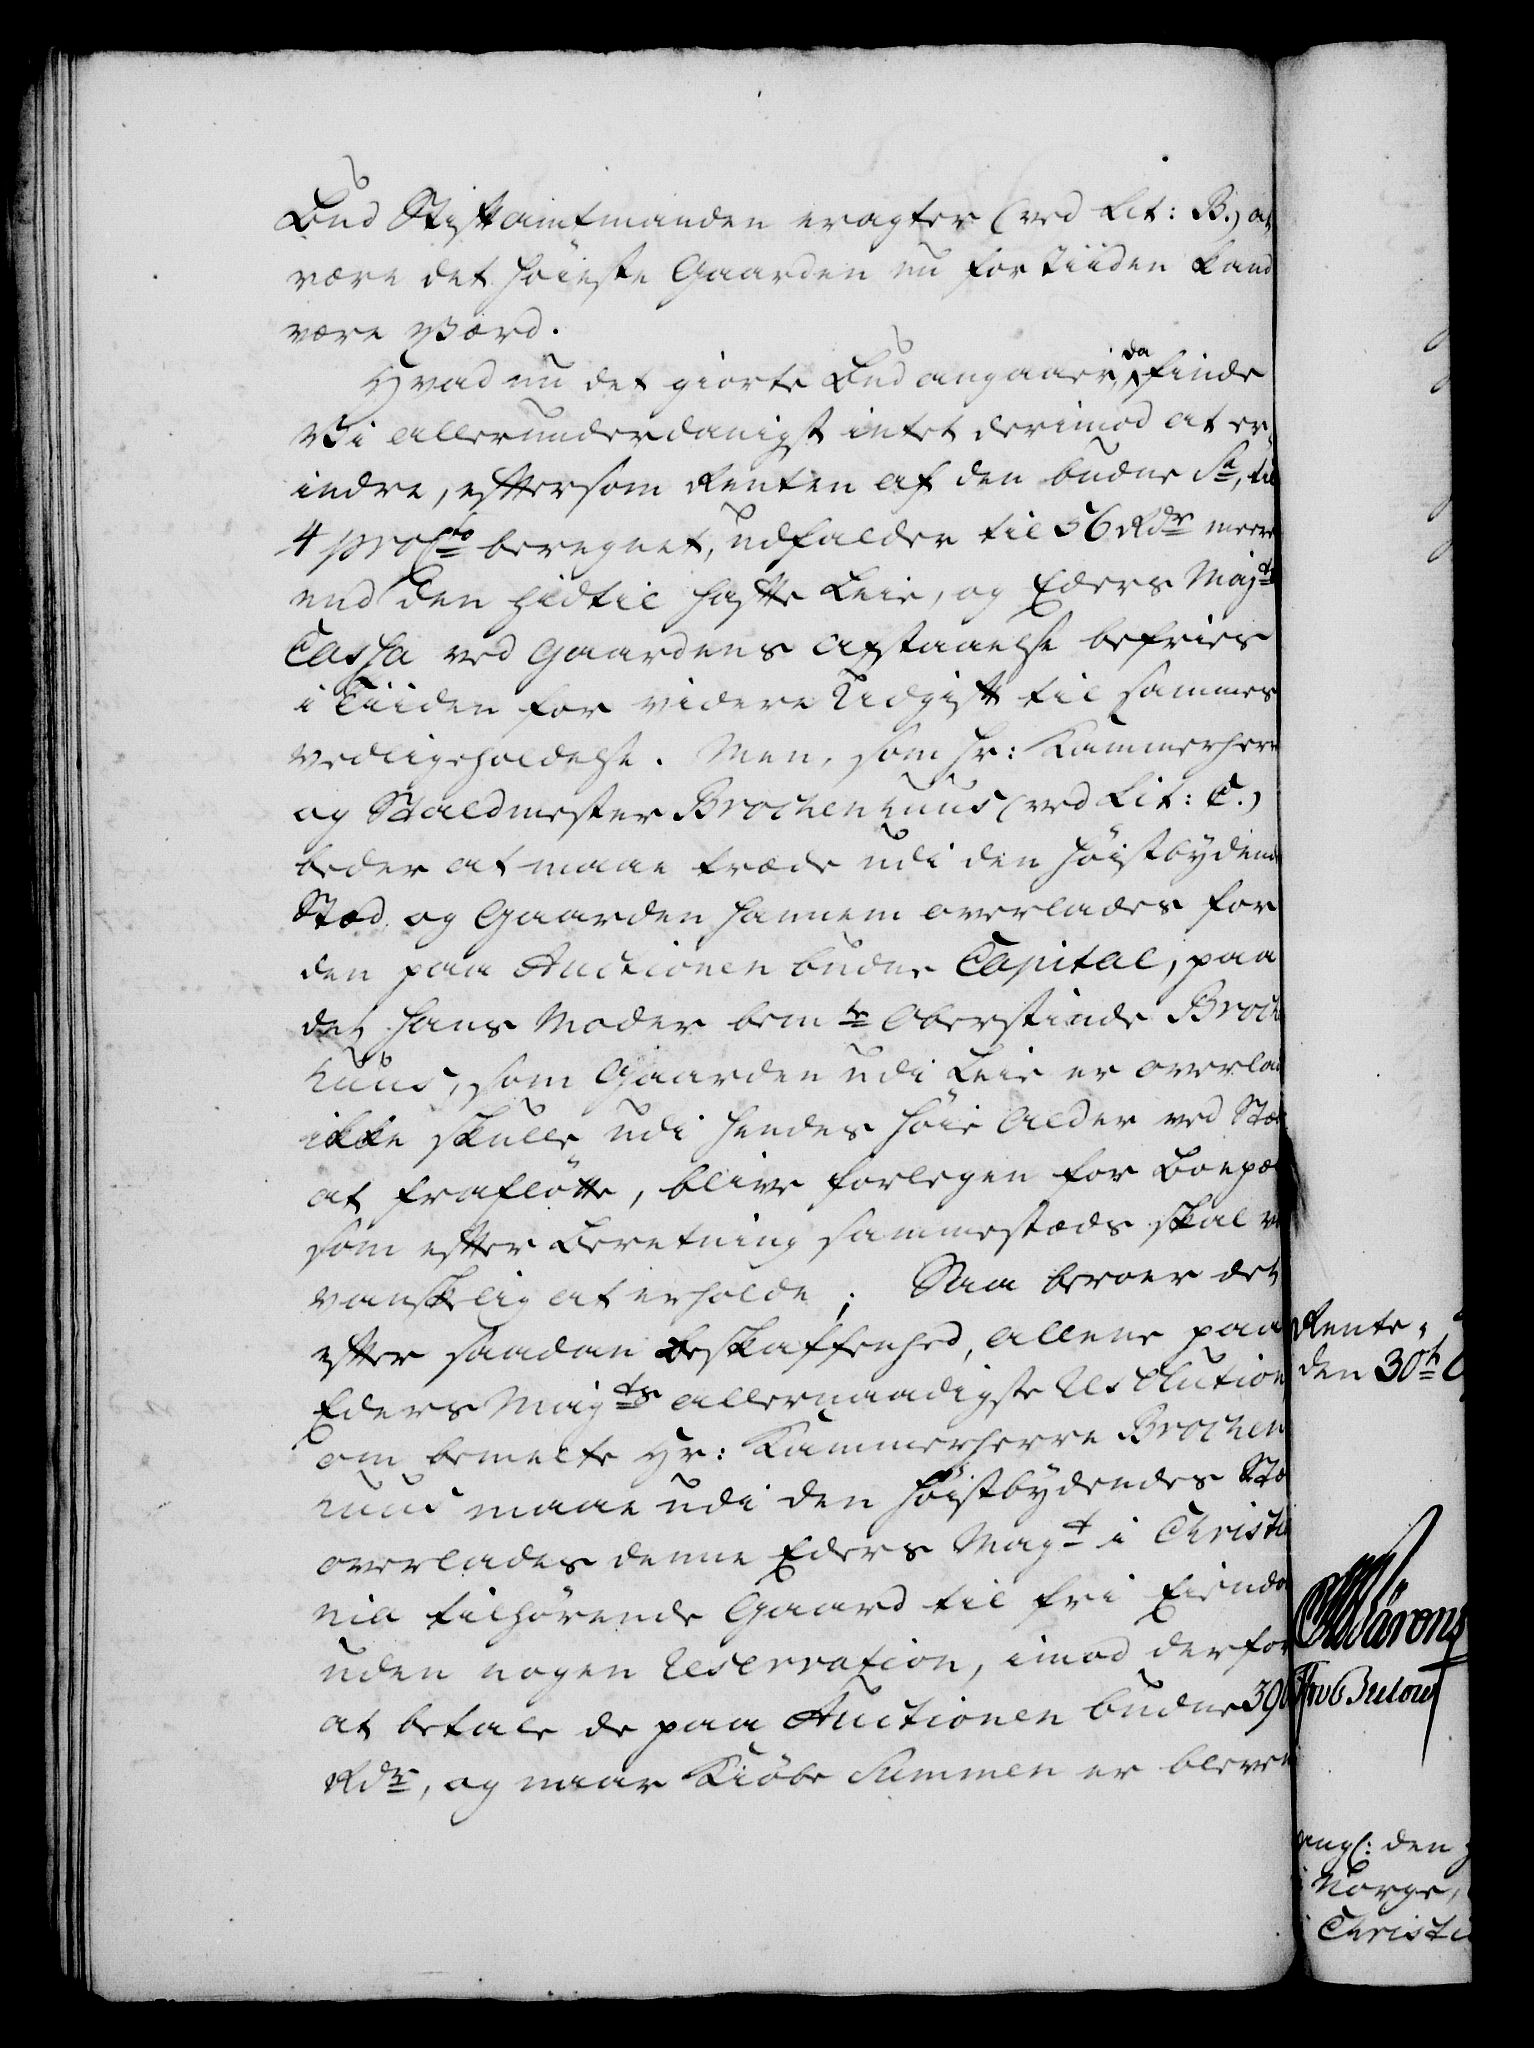 Bud Stiftamtmanden eragter (ved Lit: B.) at
være det høieste Gaarden nu for Tiiden kand
være Værd.
Hvad nu det giorte Bud angaaer, da finde
Vi allerunderdanigst intet derimod at er-
indre, eftersom Renten af den budne Sa, til
4 proCto beregnet, udfalder til 56 Rdr meere
end den hidtil hafte Leie, og Eders Majts
Cassa ved Gaardens Afstaaelse befries
i Tiiden for videre Udgift til sammes
vedligeholdelse. Men, som Hr: Kammerherre
og Staldmester Brochenhuus (ved Lit: C.)
beder at maae træde udi den høistbydende
Stæd og Gaarden hannem overlades for
den paa Auctionen budne Capital, paa
det hans Moder bemte Oberstinde Broch
huus, som Gaarden udi Leie er overla
ikke skulle udi hendes høie Alder ved Stæ
at fraflötte, blive forlegen for Boepæ
som efter Beretning sammestæds skal v
vanskelig at erholde; Saa beroer det
efter saadan Beskaffenhed, allene paa
Eders Majts allernaadigste Resolution
om bemelte Hr: Kammerherre Brochen
huus maae udi den høistbydendes Stæ
overlades denne Eders Majt i Christia
nia tilhørende Gaard til fri Eiendo
uden nogen Reservation, imod derfor
at betale de paa Auctionen budne 390
Rdr, og naar Kiöbe Summen er bleven
Rente-
den 30te
Bulow
den
Norge,
Christi